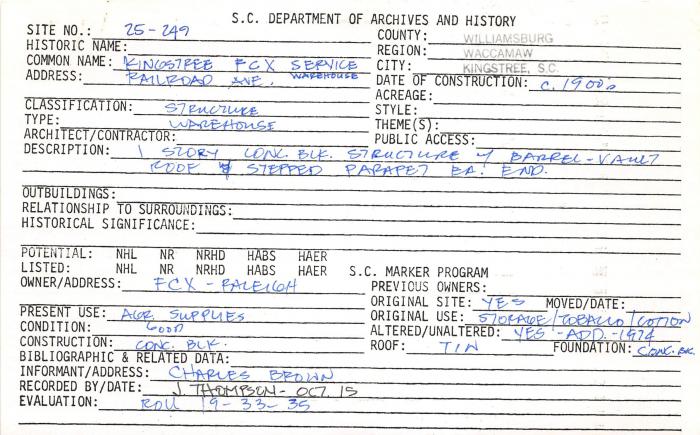 S.C. DEPARTMENT OF ARCHIVES AND HISTORY
SITE NO.: 25-249 COUNTY: WILLIAMSBURG
HISTORIC NAME: REGION: WACCAMAW
COMMON NAME: KINGSTREE FCX SERVICE WAREHOUSE CITY: KINGSTREE, S.C.
ADDRESS: RAILROAD AVE. DATE OF CONSTRUCTION: c. 1900s
ACREAGE:
CLASSIFICATION: STRUCTURE STYLE:
TYPE: WAREHOUSE THEME(S):
ARCHITECT/CONTRACTOR: PUBLIC ACCESS:
DESCRIPTION: 1 STORY CONC. BLK. STRUCTURE w/ BARREL-VAULT
ROOF & STEPPED PARAPET EA. END.
OUTBUILDINGS:
RELATIONSHIP TO SURROUNDINGS:
HISTORICAL SIGNIFICANCE:
POTENTIAL: NHL NR NRHD HABS HAER
LISTED: NHL NR NRHD HABS HAER S.C. MARKER PROGRAM
OWNER/ADDRESS: FCX - RALEIGH PREVIOUS OWNERS:
ORIGINAL SITE: YES MOVED/DATE:
PRESENT USE: AGR. SUPPLIES ORIGINAL USE: STORAGE/TOBACCO/COTTON
CONDITION: GOOD ALTERED/UNALTERED: YES - ADD. - 1974
CONSTRUCTION: CONC. BLK. ROOF: TIN FOUNDATION: CONC. BK.
BIBLIOGRAPHIC & RELATED DATA:
INFORMANT/ADDRESS: CHARLES BROWN
RECORDED BY/DATE: J. THOMPSON - OCT. 15
EVALUATION: ROLL 19-33-35